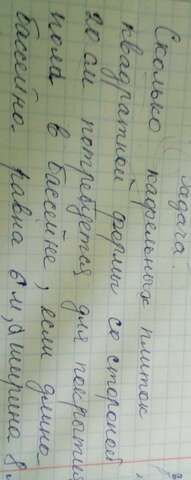 Задача.
Сколько кафельных плиток
квадратной формы со стороной
20 см потребуется для покрытия
пола в бассейне, если длина
бассейна равна 6 м, а ширина 8